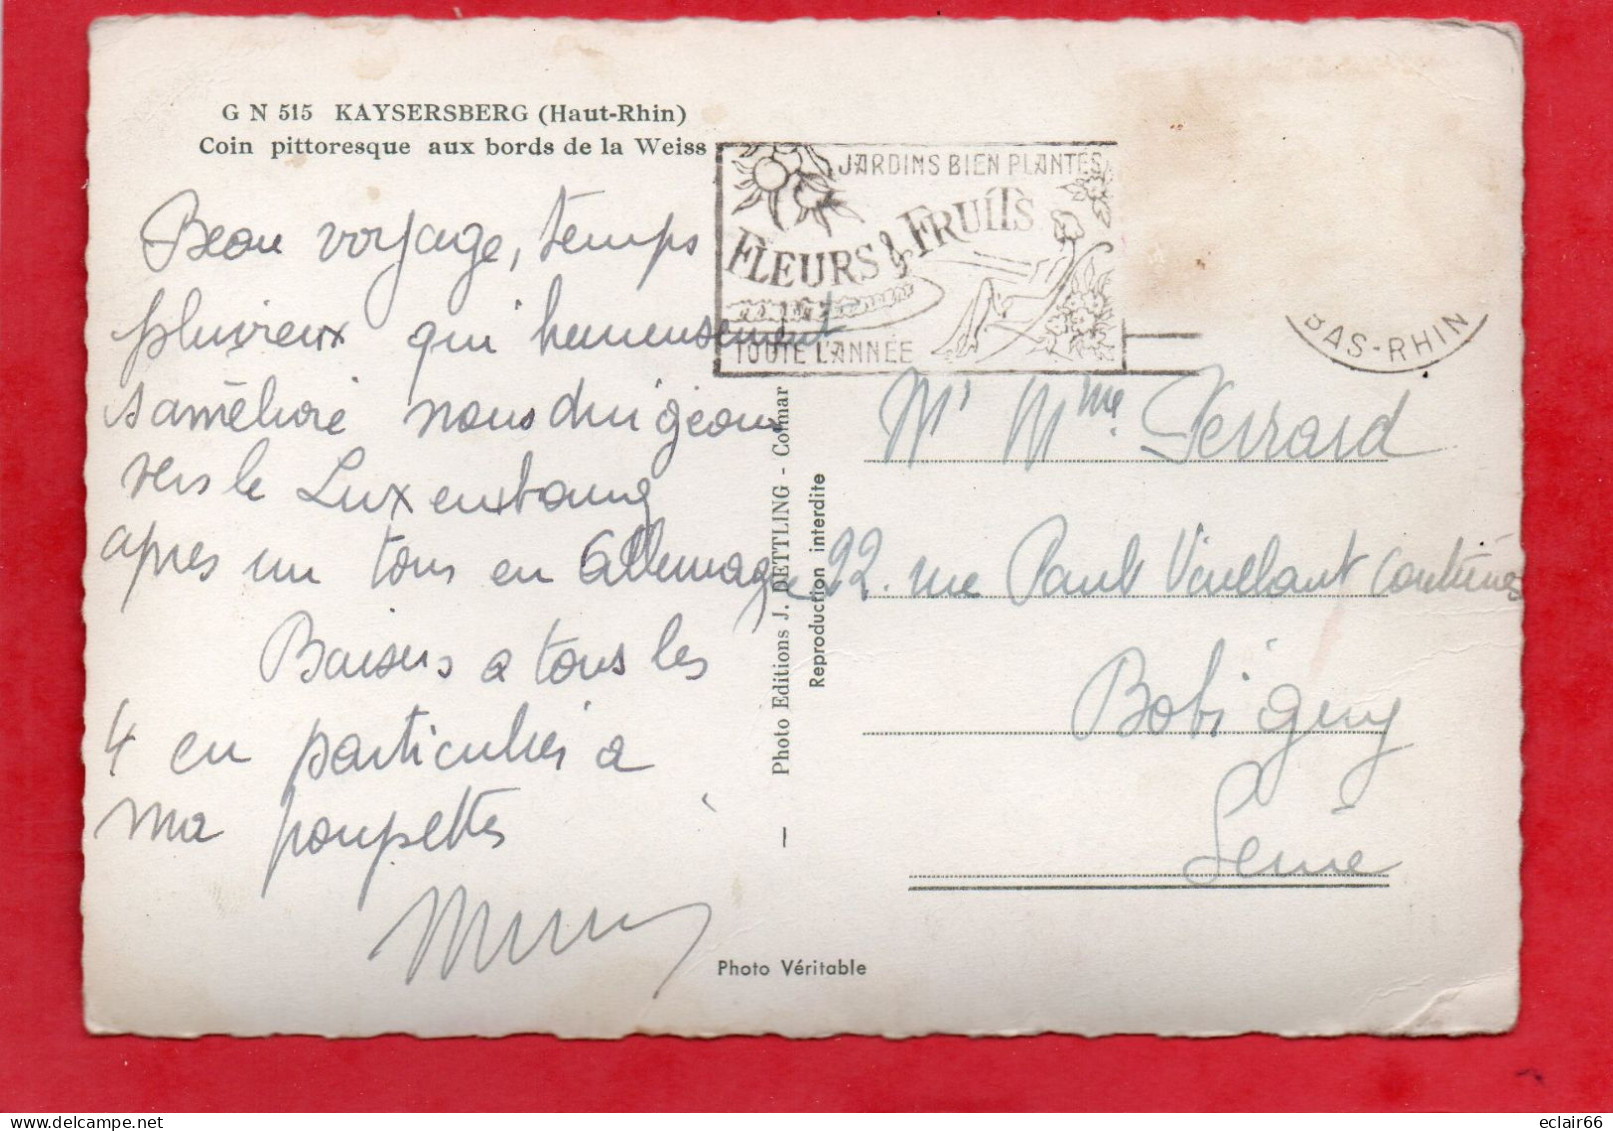 G N 515 KAYSERSBERG (Haut-Rhin)
Coin pittoresque aux bords de la Weiss
JARDINS BIEN PLANTÉS
FLEURS & FRUITS
TOUTE L'ANNÉE
BAS-RHIN
Beau voyage, temps
pluvieux qui heureusement
s'améliore nous dirigeons
vers le Luxembourg
après un tour en Allemagne
Baisers a tous les
4 en particulier a
ma poupette
Mr Mme Ferrard
22. rue Paul Vaillant Couturier
Bobigny
Seine
Photo Editions J. DETTLING - Colmar
Reproduction interdite
Photo Véritable
eclair66